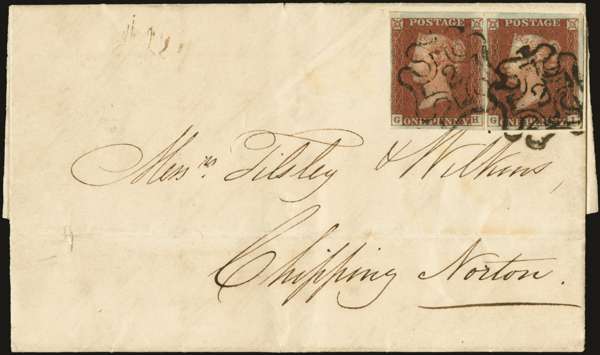 POSTAGE POSTAGE
G ONE PENNY H G ONE PENNY I
2 2
Messrs. Tilsley & Wilkins,
Chipping Norton.